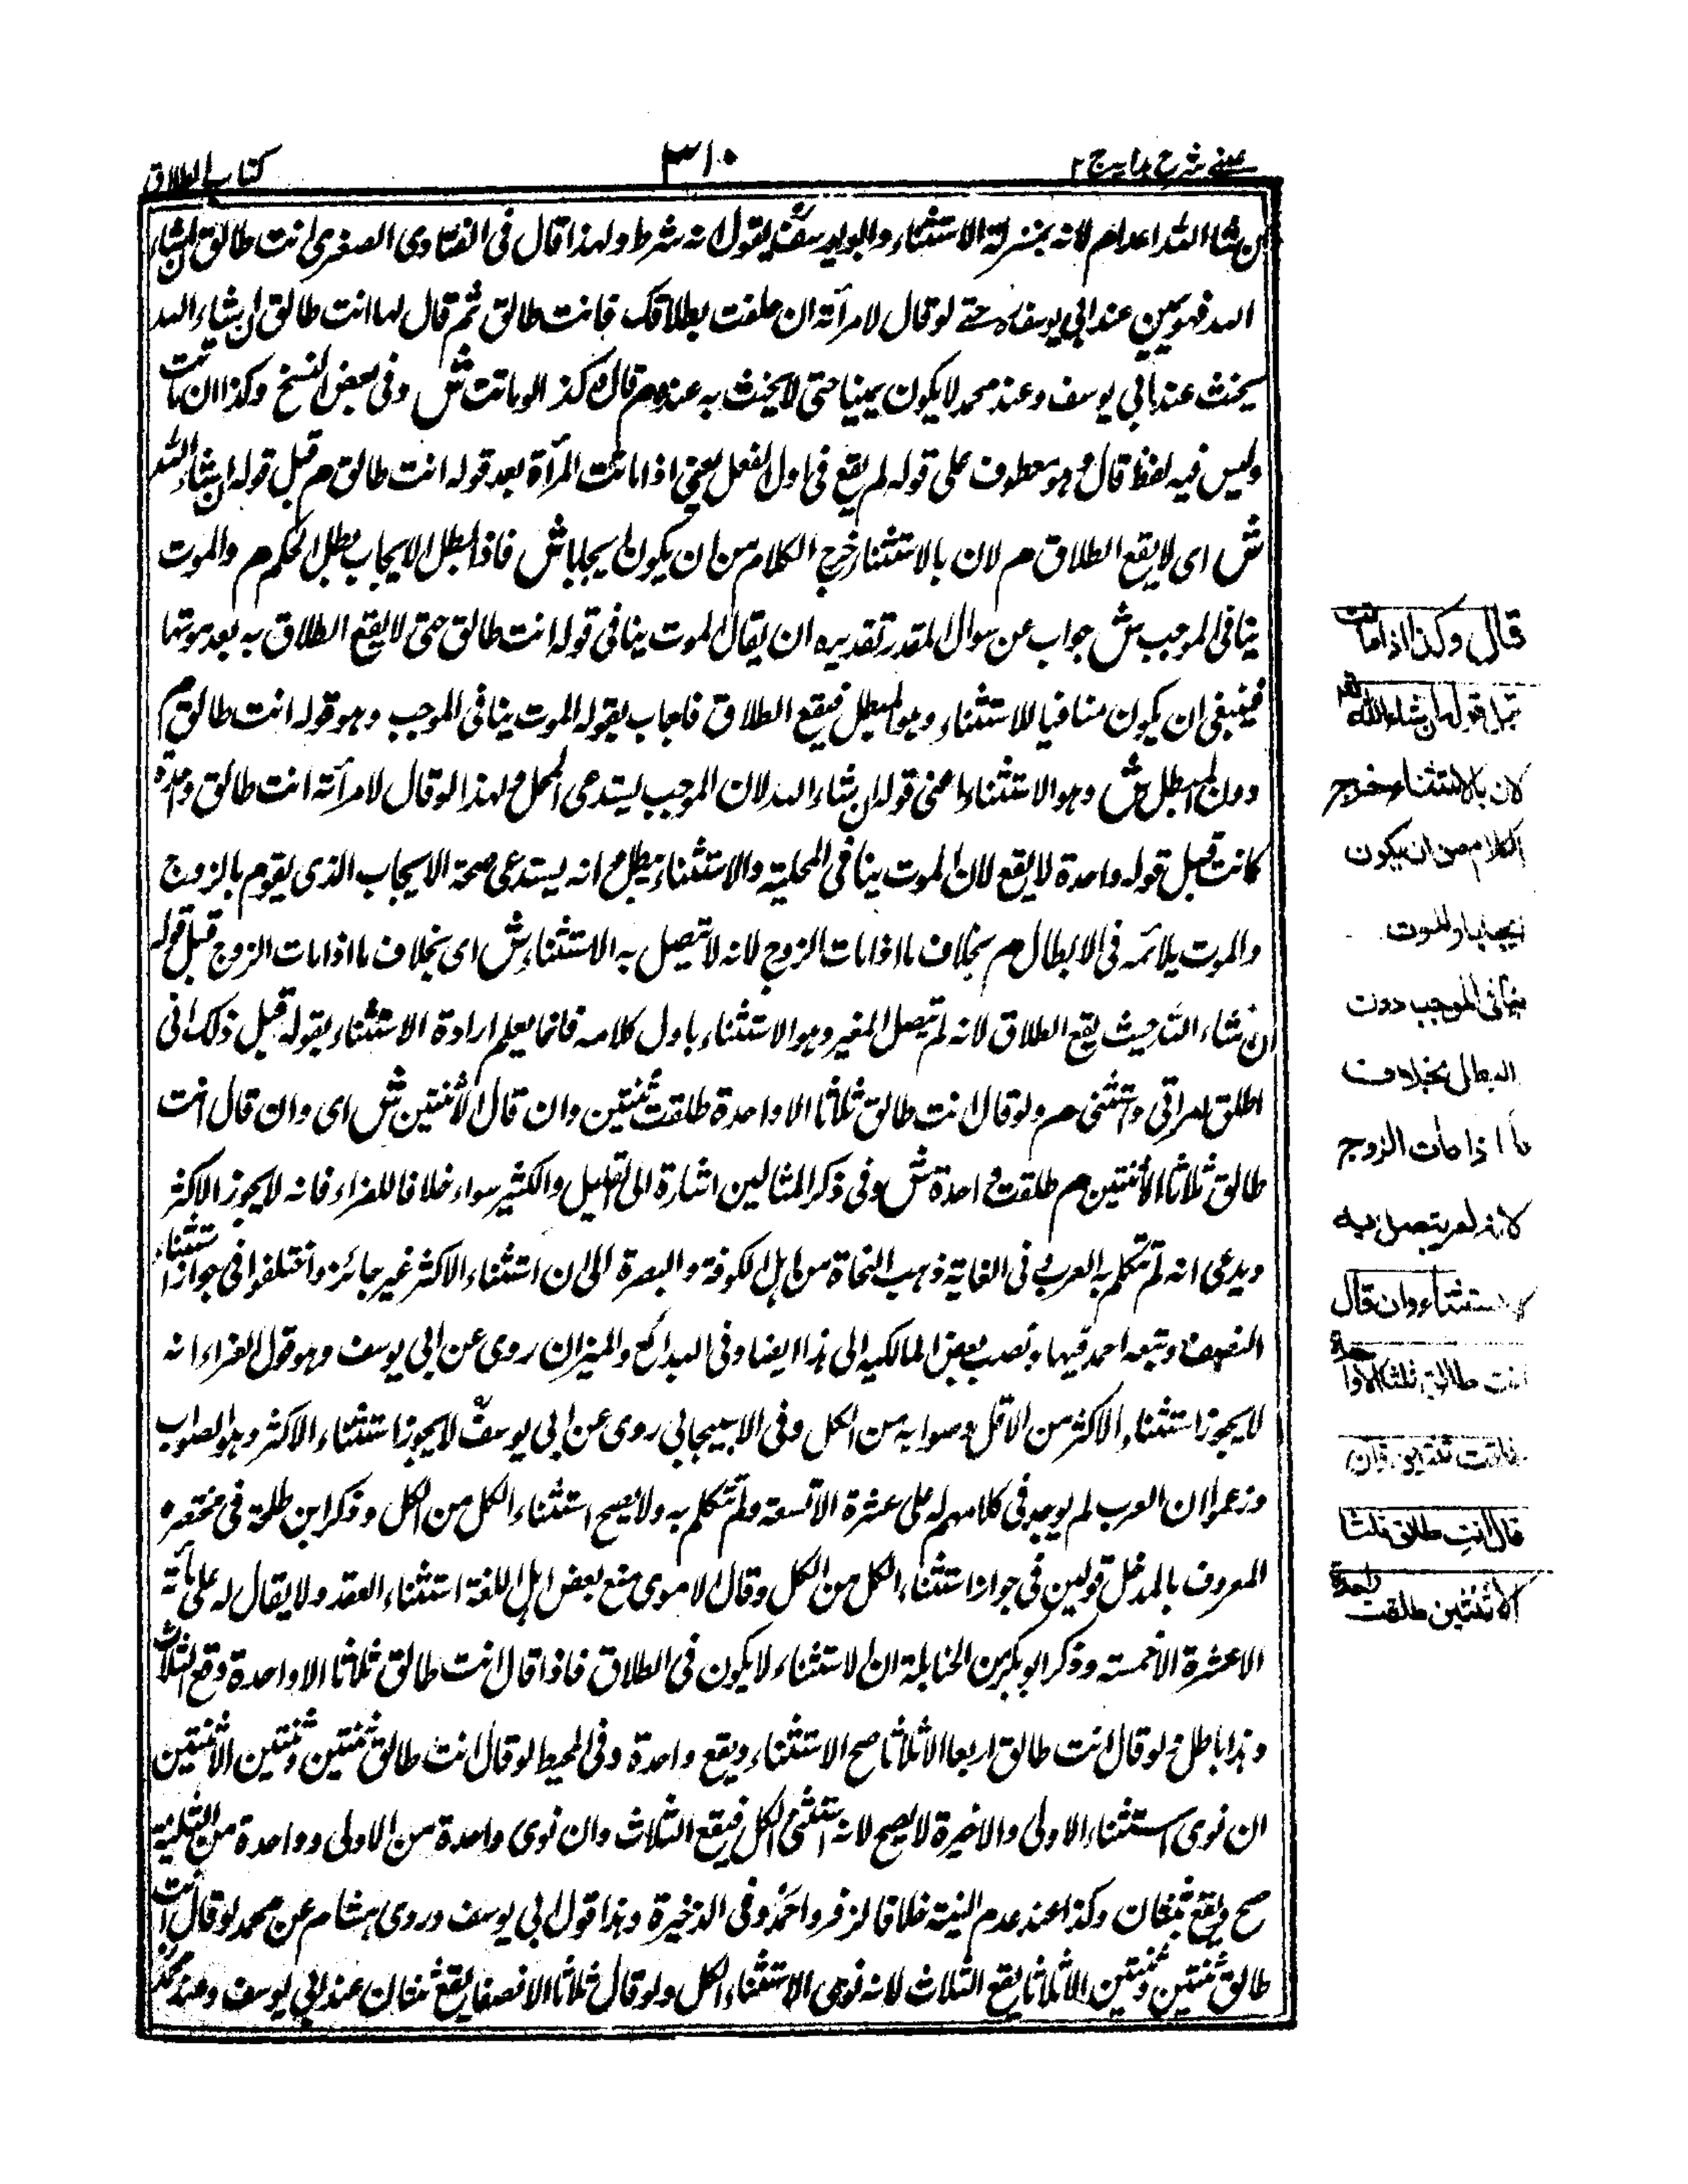 عينى شرح هدايه ج ٢
٣١٠
كتاب الطلاق
ان شاء الله اعدام لانه بمنزلة الاستثناء وابو يوسف يقول انه شرط ولهذا قال فى الفتاوى الصغرى انت طالق ان شاء
الله فهو يمين عند ابى يوسف حتى لو قال لامرأته ان حلفت بطلاقك فانت طالق ثم قال لها انت طالق ان شاء الله
يحنث عند ابى يوسف وعند محمد لا يكون يمينا حتى لا يحنث به عنده م قال وكذا لو ماتت ش وفى بعض النسخ وكذا ان ماتت
وليس فيه لفظ قال وهو معطوف على قوله لم يقع فى اول الفعل يعنى اذا ماتت المرأة بعد قوله انت طالق م قبل قوله ان شاء الله
ش اى لا يقع الطلاق م لان بالاستثناء خرج الكلام من ان يكون ايجابا ش فاذا بطل الايجاب بطل الحكم م والموت
ينافى الموجب ش جواب عن سوال المقدر تقديره ان يقال الموت ينافى قوله انت طالق حتى لا يقع الطلاق به بعد موتها
فينبغى ان يكون منافيا للاستثناء وهو المبطل فيقع الطلاق فاجاب بقوله الموت ينافى الموجب وهو قوله انت طالق م
دون المبطل ش وهو الاستثناء اعنى قوله ان شاء الله لان الموجب يستدعى المحل ولهذا لو قال لامرأته انت طالق واحدة
كانت قبل قوله واحدة لا يقع لان الموت ينافى المحلية والاستثناء يبطل انه يستدعى صحة الايجاب الذى يقوم بالزوج
والموت يلائمه فى الابطال م بخلاف ما اذا مات الزوج لانه لا يتصل به الاستثناء ش اى بخلاف ما اذا مات الزوج قبل قوله
ان شاء الله حيث يقع الطلاق لانه لم يتصل المغير وهو الاستثناء باول كلامه فانما يعلم ارادة الاستثناء بقوله قبل ذلك انى
اطلق امراتى واستثنى م ولو قال انت طالق ثلاثا الا واحدة طلقت ثنتين وان قال الا ثنتين ش اى وان قال انت
طالق ثلاثا الا ثنتين م طلقت واحدة ش وفى ذكر المثالين اشارة الى القليل والكثير سواء خلافا للفراء فانه لا يجوز الاكثر
ويدعى انه لم تتكلم به العرب فى الغاية ذهب النحاة من اهل الكوفة والبصرة الى ان استثناء الاكثر غير جائز واختلفوا فى جواز استثناء
النصف وتبعه احمد فيها وتصب بعض المالكيه الى هذا ايضا وفى البدائع والميزان روى عن ابى يوسف وهو قول الفراء انه
لا يجوز استثناء الاكثر من الاقل وصوابه من الكل وفى الاسبيجابى روى عن ابى يوسف لا يجوز استثناء الاكثر وهو الصواب
وزعموا ان العرب لم يوجد فى كلامهم له على عشرة الا تسعة ولم تتكلم به ولا يصح استثناء الكل من الكل وذكر ابن طلحة فى مختصره
المعروف بالمدخل قولين فى جواز استثناء الكل من الكل وقال الاموى منع بعض اهل اللغة استثناء العقد ولا يقال له على مائة
الا عشرة الا خمسة وذكر ابو بكر من الحنابلة ان الاستثناء لا يكون فى الطلاق فاذا قال انت طالق ثلاثا الا واحدة وقع الثلاث
وهذا باطل ولو قال انت طالق اربعا الا ثلاثا صح الاستثناء ويقع واحدة وفى المحيط لو قال انت طالق ثنتين وثنتين الا ثنتين
ان نوى استثناء الاولى والاخيرة لا يصح لانه استثنى الكل فيقع الثلاث وان نوى واحدة من الاولى وواحدة من الثانية
صح ويقع ثنتان وكذا عند عدم النية خلافا لزفر واحمد وفى الذخيرة وهذا قول ابى يوسف وروى هشام عن محمد لو قال انت
طالق ثنتين وثنتين الا ثلاثا يقع الثلاث لانه نوى الاستثناء الكل ولو قال ثلاثا الا نصفا يقع ثنتان عند ابى يوسف وعند محمد
قال وكذا اذا ماتت
قبل قوله ان شاء الله
لان بالاستثناء خرج
الكلام من ان يكون
ايجابا والموت
ينافى الموجب دون
المبطل بخلاف
ما اذا مات الزوج
لانه لم يتصل به
الاستثناء وان قال
انت طالق ثلثا الا واحدة
طلقت ثنتين وان
قال انت طالق ثلثا
الا ثنتين طلقت واحدة